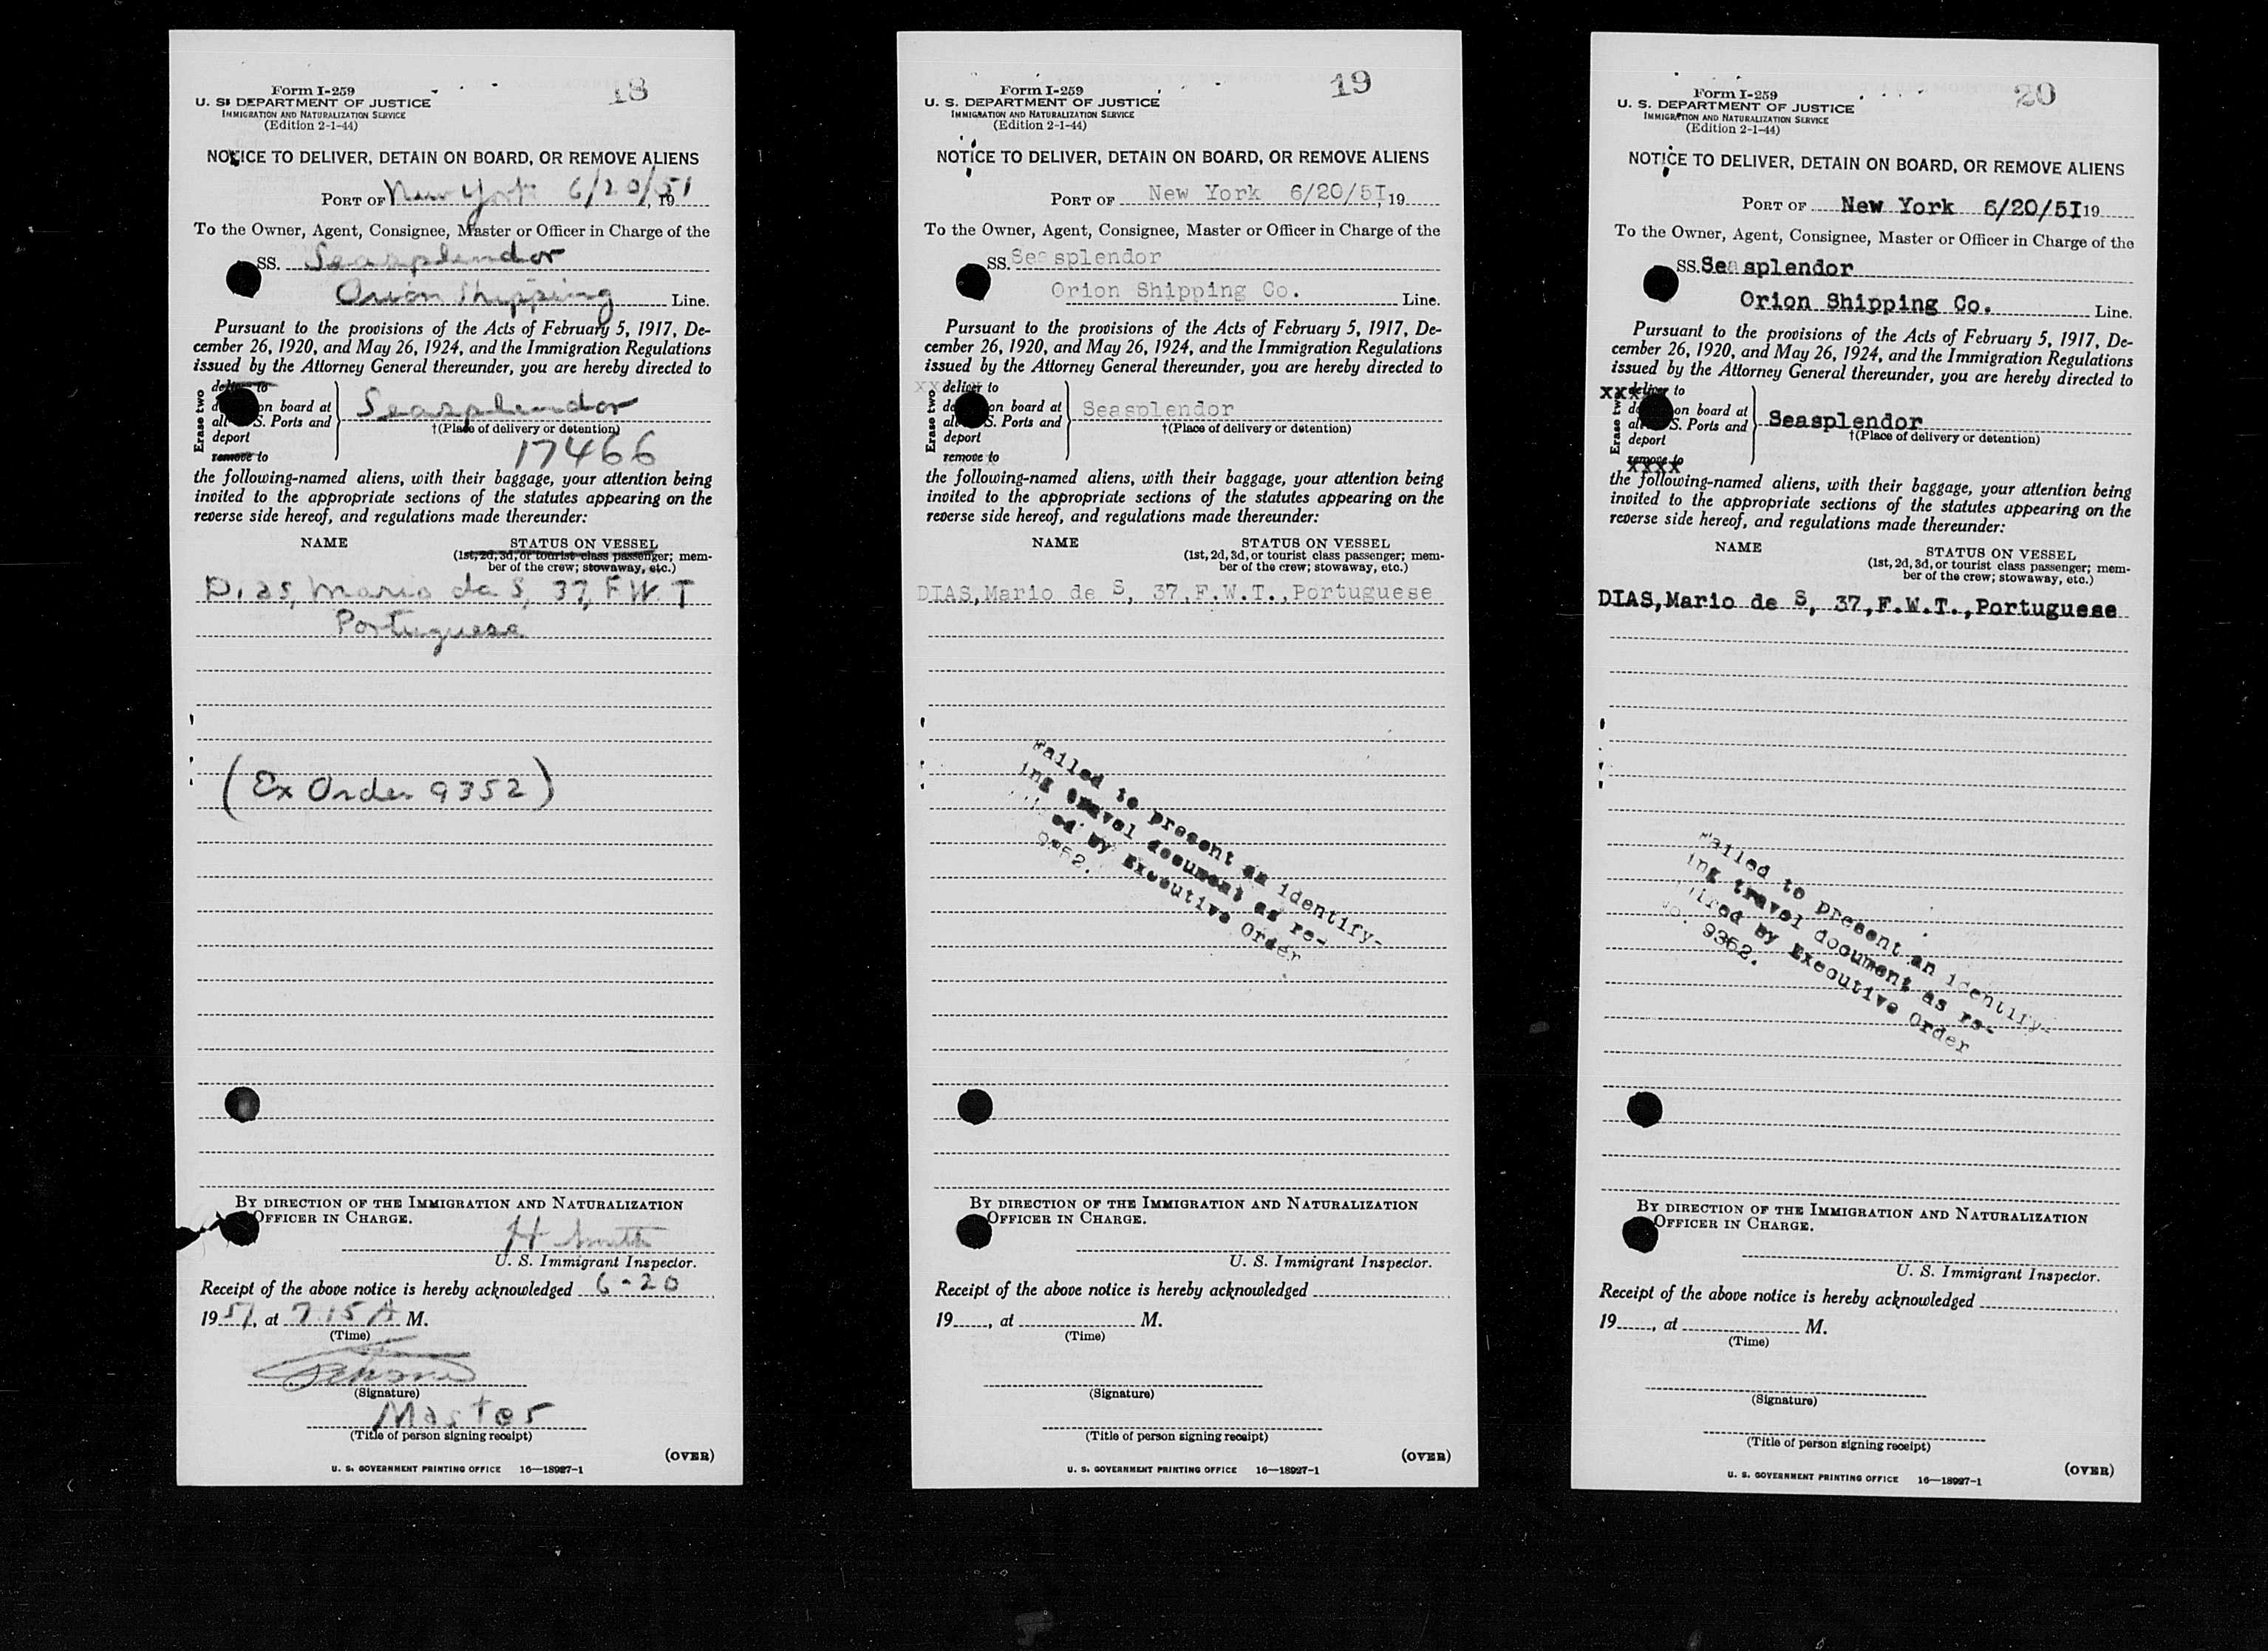 18
Form I-259
U. S. DEPARTMENT OF JUSTICE
IMMIGRATION AND NATURALIZATION SERVICE
(Edition 2-1-44)
NOTICE TO DELIVER, DETAIN ON BOARD, OR REMOVE ALIENS
PORT OF New York 6/20/51, 19
To the Owner, Agent, Consignee, Master or Officer in Charge of the
SS. Seasplendor
Orion Shipping Line.
Pursuant to the provisions of the Acts of February 5, 1917, De-
cember 26, 1920, and May 26, 1924, and the Immigration Regulations
issued by the Attorney General thereunder, you are hereby directed to
Erase two
deliver to
on board at
all S. Ports and
deport
remove to
Seasplendor
†(Place of delivery or detention)
17466
the following-named aliens, with their baggage, your attention being
invited to the appropriate sections of the statutes appearing on the
reverse side hereof, and regulations made thereunder:
NAME STATUS ON VESSEL
(1st, 2d, 3d, or tourist class passenger; mem-
ber of the crew; stowaway, etc.)
Dias, Mario da S, 37, F.W.T
Portuguese
(Ex Order 9352)
BY DIRECTION OF THE IMMIGRATION AND NATURALIZATION
OFFICER IN CHARGE.
H Smith
U. S. Immigrant Inspector.
Receipt of the above notice is hereby acknowledged 6-20
1951, at 7 15 A M.
(Time)
(Signature)
Master
(Title of person signing receipt)
(OVER)
U. S. GOVERNMENT PRINTING OFFICE 16—18927-1
19
Form I-259
U. S. DEPARTMENT OF JUSTICE
IMMIGRATION AND NATURALIZATION SERVICE
(Edition 2-1-44)
NOTICE TO DELIVER, DETAIN ON BOARD, OR REMOVE ALIENS
PORT OF New York 6/20/5I, 19
To the Owner, Agent, Consignee, Master or Officer in Charge of the
SS. Seasplendor
Orion Shipping Co. Line.
Pursuant to the provisions of the Acts of February 5, 1917, De-
cember 26, 1920, and May 26, 1924, and the Immigration Regulations
issued by the Attorney General thereunder, you are hereby directed to
Erase two
deliver to
on board at
all S. Ports and
deport
remove to
Seasplendor
†(Place of delivery or detention)
the following-named aliens, with their baggage, your attention being
invited to the appropriate sections of the statutes appearing on the
reverse side hereof, and regulations made thereunder:
NAME STATUS ON VESSEL
(1st, 2d, 3d, or tourist class passenger; mem-
ber of the crew; stowaway, etc.)
DIAS,Mario de S, 37,F.W.T.,Portuguese
Failed to present an identify-
ing travel document as re-
ed by Executive Order
9352.
BY DIRECTION OF THE IMMIGRATION AND NATURALIZATION
OFFICER IN CHARGE.
U. S. Immigrant Inspector.
Receipt of the above notice is hereby acknowledged
19, at M.
(Time)
(Signature)
(Title of person signing receipt)
(OVER)
U. S. GOVERNMENT PRINTING OFFICE 16—18927-1
20
Form I-259
U. S. DEPARTMENT OF JUSTICE
IMMIGRATION AND NATURALIZATION SERVICE
(Edition 2-1-44)
NOTICE TO DELIVER, DETAIN ON BOARD, OR REMOVE ALIENS
PORT OF New York 6/20/5I 19
To the Owner, Agent, Consignee, Master or Officer in Charge of the
SS. Seasplendor
Orion Shipping Co. Line.
Pursuant to the provisions of the Acts of February 5, 1917, De-
cember 26, 1920, and May 26, 1924, and the Immigration Regulations
issued by the Attorney General thereunder, you are hereby directed to
Erase two
deliver to
on board at
all S. Ports and
deport
remove to
xxxx
Seasplendor
†(Place of delivery or detention)
the following-named aliens, with their baggage, your attention being
invited to the appropriate sections of the statutes appearing on the
reverse side hereof, and regulations made thereunder:
NAME STATUS ON VESSEL
(1st, 2d, 3d, or tourist class passenger; mem-
ber of the crew; stowaway, etc.)
DIAS,Mario de S, 37,F.W.T.,Portuguese
Failed to present an identify-
ing travel document as re-
uired by Executive Order
No. 9352.
BY DIRECTION OF THE IMMIGRATION AND NATURALIZATION
OFFICER IN CHARGE.
U. S. Immigrant Inspector.
Receipt of the above notice is hereby acknowledged
19, at M.
(Time)
(Signature)
(Title of person signing receipt)
(OVER)
U. S. GOVERNMENT PRINTING OFFICE 16—18927-1